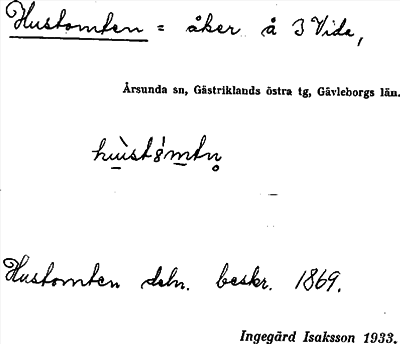 Hustomten = åker å 3 Vida,
Årsunda sn, Gästriklands östra tg, Gävleborgs län.
hùstómtn̥
Hustomten deln. beskr. 1869.
Ingegärd Isaksson 1933.